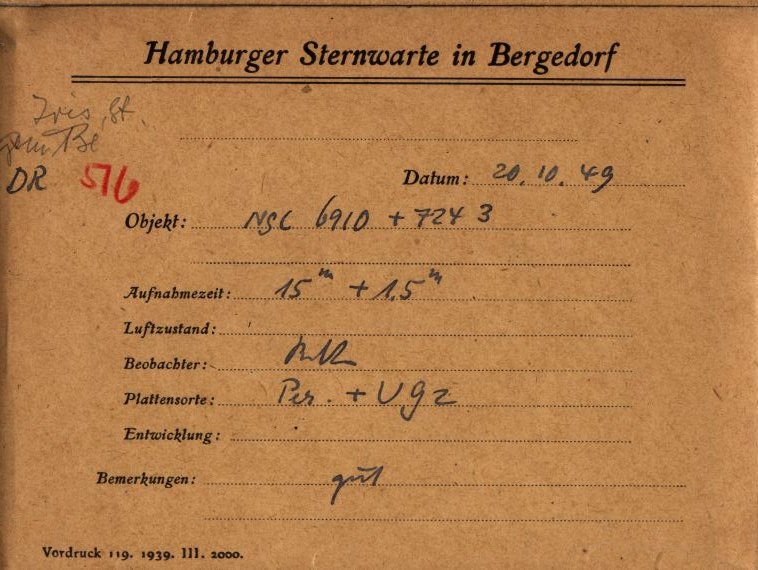 Hamburger Sternwarte in Bergedorf
Iris, St.
DR 576
Datum: 20. 10. 49
Objekt: NGC 6910 + 7243
Aufnahmezeit: 15ᵐ + 1.5ᵐ
Luftzustand:
Beobachter:
Plattensorte: Per. + UG2
Entwicklung:
Bemerkungen: gut
Vordruck 119. 1939. III. 2000.